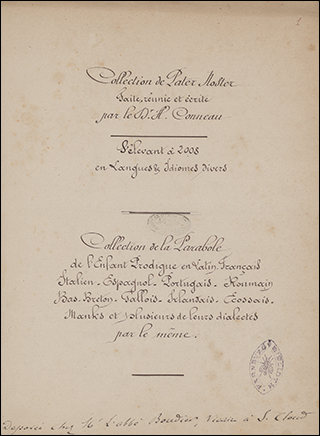 1
Collection de Pater Noster
faite, réunie et écrite
par le Dr. H. Conneau
S'élevant à 2005
en Langues & Idiomes Divers
Collection de la Parabole
de l'Enfant Prodigue en Latin. Français
Italien - Espagnol - Portugais - Roumain
Bas-Breton - Gallois - Irlandais - Ecossais -
Manks et plusieurs de leurs dialectes
par le même.
Déposée chez Mr. l'abbé Boudier, Vicaire à S. Cloud